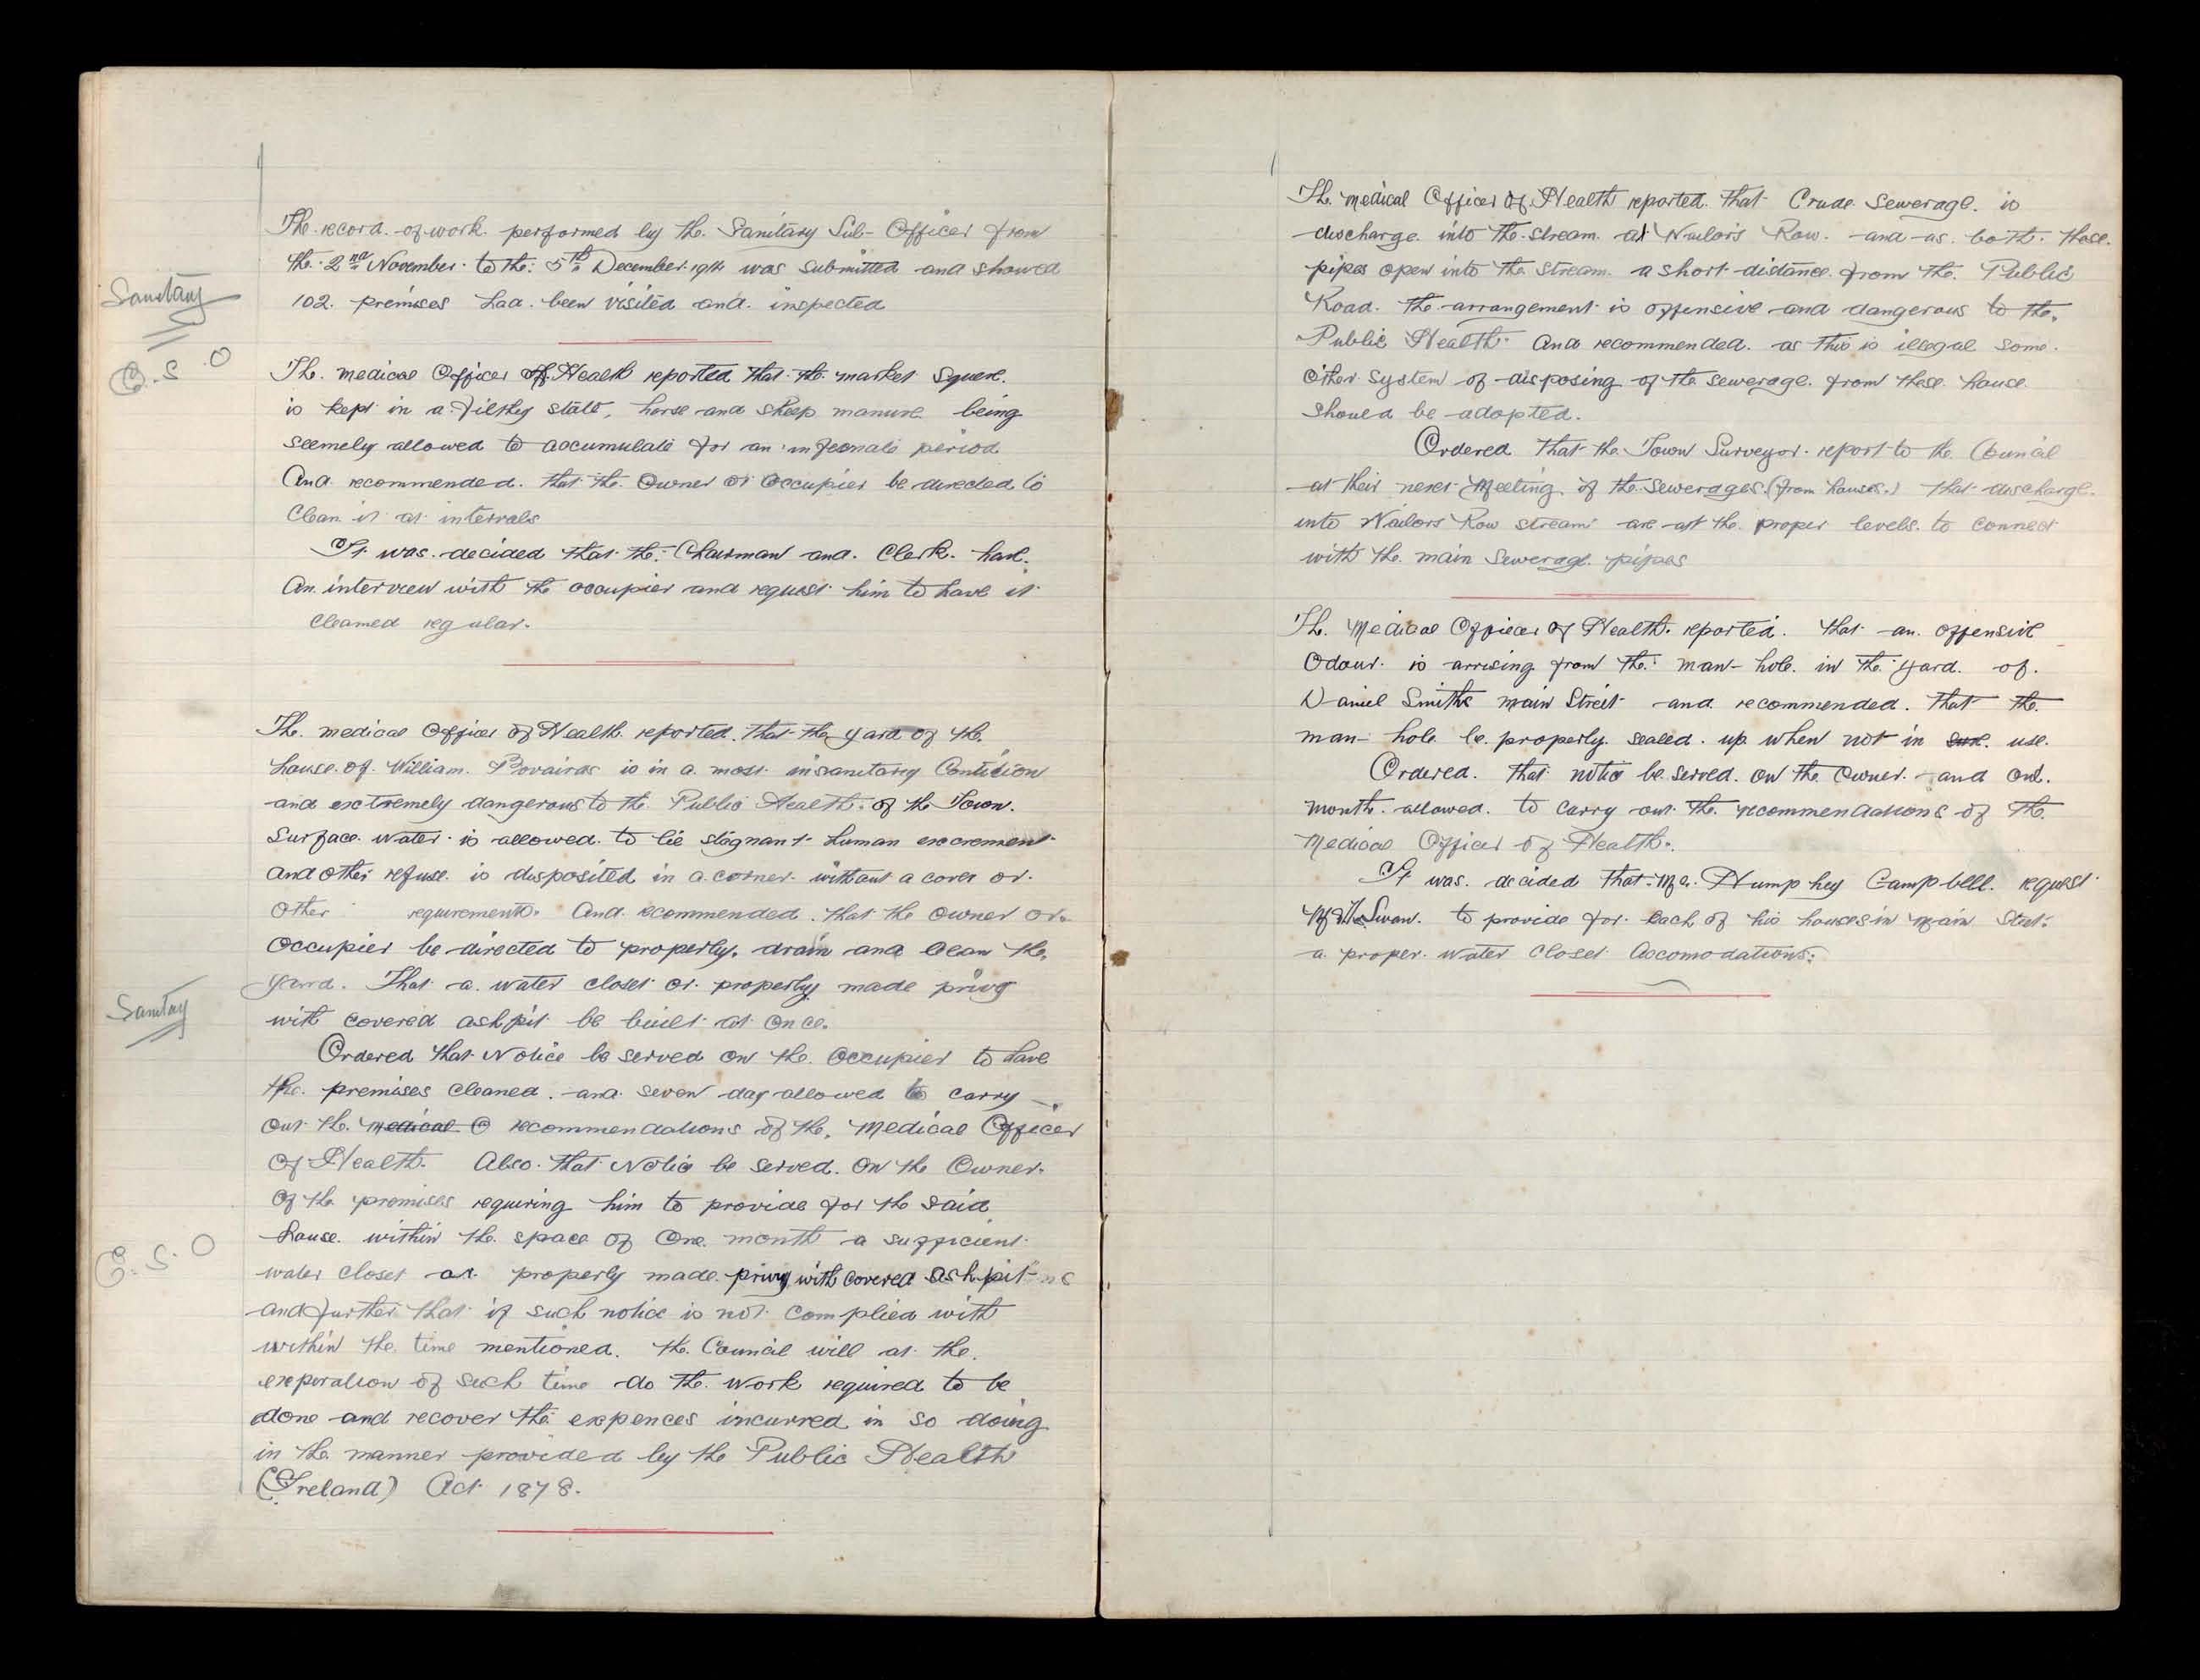 The record of work performed by the Sanitary Sub-Officer from
the 2nd November to the 5th December 1914 was submitted and showed
102 premises had been visited and inspected
Sanitary
E.S.O
The medical Officer of Health reported that the market Square
is kept in a filthy state, horse and sheep manure being
seemely allowed to accumulate for an period
And recommended that the Owner or Occupier be directed to
Clean it at intervals
It was decided that the Chairman and Clerk have
An interview with the occupier and request him to have it
cleamed regular.
The medical Officer of Health reported that the yard of the
house of William is in a most insanitary Contition
and extremely dangerous to the Public Health of the Town.
Surface water is allowed to lie stagnant human excrement
and other refuse is disposited in a corner without a cover or
other requirements. And recommended that the owner or
Occupier be directed to properly drain and clean the
yard. That a water closet or properly made privy
with covered ashpit be built at once.
Sanitay
Ordered that Notice be served on the Occupier to have
the premises cleaned and seven day allowed to carry
out the Medical O recommendations of the Medical Officer
of Health. Also that Notice be served on the Owner
of the premises requiring him to provide for the said
house within the space of One month a sufficient
E.S.O
water closet or properly made privy with covered ashpit
and further that if such notice is not complied with
within the time mentioned the Council will at the
expiration of such time do the work required to be
done and recover the expences incurred in so doing
in the manner provided by the Public Health
(Ireland) Act 1878.
The Medical Officer of Health reported that Crude Sewerage is
discharge into the stream at Nailors Row and as both those
pipes open into the stream a short distance from the Public
Road the arrangement is offensive and dangerous to the
Public Health And recommended as this is illegal some
other system of disposing of the sewerage from these house
should be adopted.
Ordered that the Town Surveyor report to the Council
at their next Meeting if the Sewerages (from houses) that discharge
into Nailors Row stream are at the proper levels to connect
with the main Sewerage pipes
The Medical Officer of Health reported that an offensive
Odour is arrising from the man-hole in the yard of
Daniel Smiths main Street and recommended that the
man-hole be properly sealed up when not in use
Ordered that notice be served on the Owner and one
month allowed to carry out the recommendations of the
Medical Officer of Health.
It was decided that Mr Humphey Campbell request
Swan to provide for each of his houses in Main Street
a proper water closet Accomodations